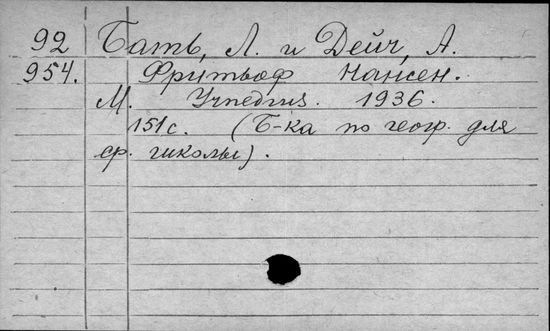 92 Бать, Л. и Дейч, А.
954. Фритьоф Нансен.
М. Учпедгиз. 1936.
151 с. (Б-ка по геогр. для
ср. школы).